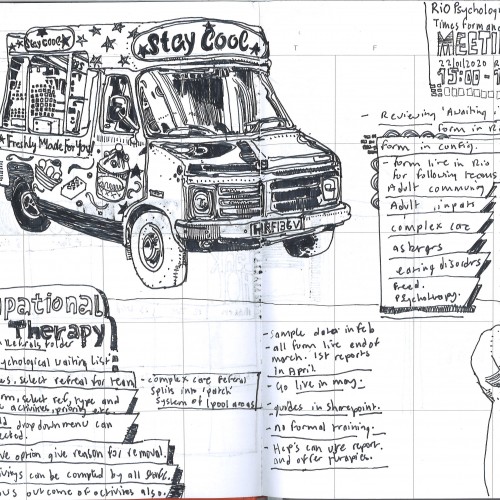 Stay Cool
Stay Cool
Freshly Made for You!
HRF136V
RiO Psycholog
Times form and
MEETI
22/01/2020 R
15:00 - 1
- Reviewing 'Awaiting
form in Ri
form in config.
- form live in Rio
for following teams
Adult community
Adult inpats
complex care
aspergers
eating disorders
Psychotherapy.
upational
Therapy
sychological waiting list
select referral for team
rm, select ref, type and
activities, priority etc.
dropdown menu can
ected.
ve option give reason for removal.
ivings can be completed by all staff.
ous outcome of activities also.
- complex care referral
splits into 'patch'
system of (pool areas)
- Sample data in feb
- all forms live end of
march. 1st reports
in April
- Go live in may.
- guides in Sharepoint.
- no formal training.
- Hcp's can use report.
and offer therapies.